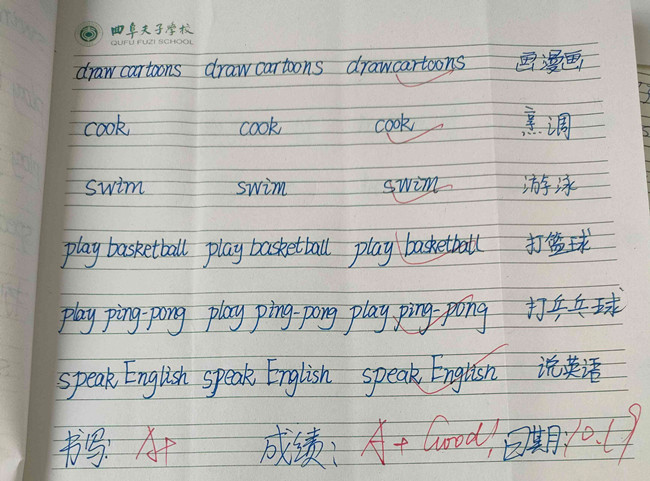 曲阜夫子学校
QUFU FUZI SCHOOL
draw cartoons draw cartoons draw cartoons 画漫画
cook cook cook 烹调
swim swim swim 游泳
play basketball play basketball play basketball 打篮球
play ping-pong play ping-pong play ping-pong 打乒乓球
speak English speak English speak English 说英语
书写: A+ 成绩: A+ Good! 日期: 10.19